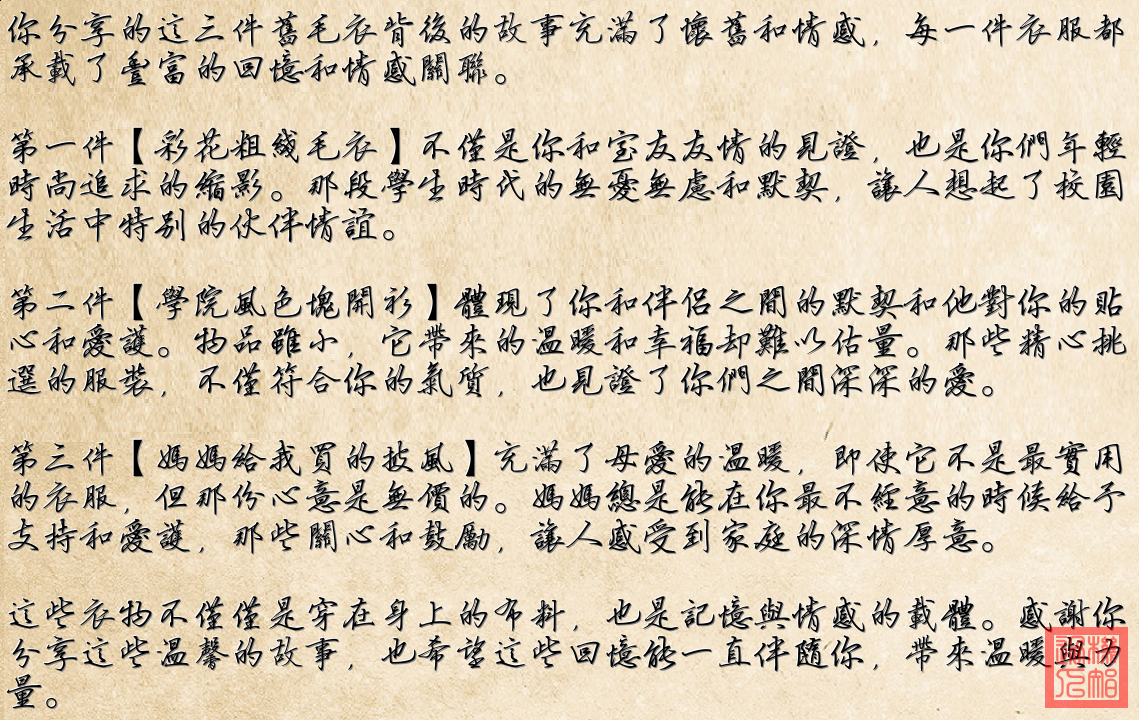 你分享的這三件舊毛衣背後的故事充滿了懷舊和情感，每一件衣服都
承載了豐富的回憶和情感關聯。
第一件【彩花粗綫毛衣】不僅是你和宝友友情的見證，也是你們年輕
時尚追求的縮影。那段學生時代的無憂無慮和默契，讓人想起了校園
生活中特别的伙伴情誼。
第二件【學院風色塊開衫】體現了你和伴侣之間的默契和他對你的貼
心和愛護。物品雖小，它帶來的溫暖和幸福却難以估量。那些精心挑
選的服裝，不僅符合你的氣质，也見證了你們之間深深的愛。
第三件【媽媽給我買的披風】充滿了母愛的溫暖，即使它不是最實用
的衣服，但那份心意是無價的。媽媽總是能在你最不經意的時候給予
支持和愛護，那些關心和鼓勵，讓人感受到家庭的深情厚意。
這些衣物不僅僅是穿在身上的布料，也是記憶與情感的載體。感謝你
分享這些溫馨的故事，也希望這些回憶能一直伴隨你，帶來溫暖與力
量。